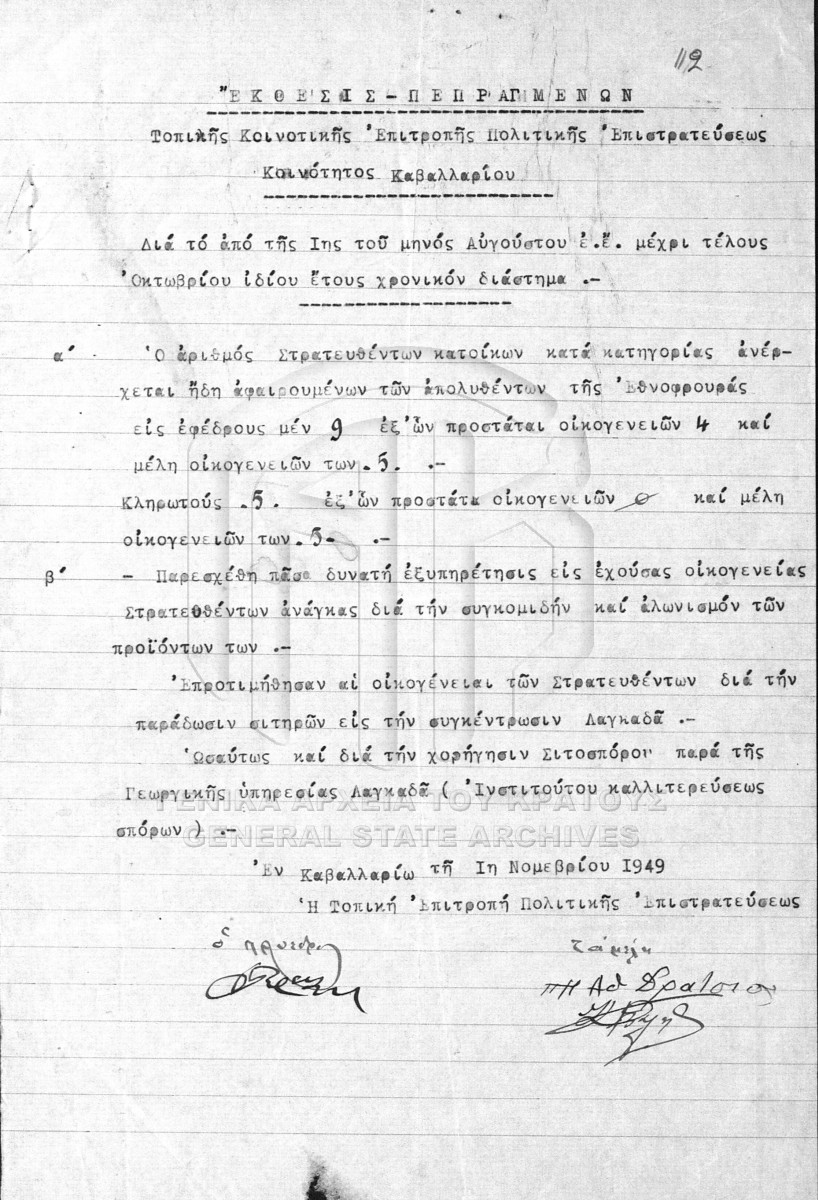 112
"ΕΚΘΕΣΙΣ-ΠΕΠΡΑΓΜΕΝΩΝ
Τοπικῆς Κοινοτικῆς Ἐπιτροπῆς Πολιτικῆς Ἐπιστρατεύσεως
Κοινότητος Καβαλλαρίου
Διά τό ἀπό τῆς Ιης τοῦ μηνός Αὐγούστου ἐ.ἔ. μέχρι τέλους
Ὀκτωβρίου ἰδίου ἔτους χρονικόν διάστημα .-
α' Ὁ ἀριθμός Στρατευθέντων κατοίκων κατά κατηγορίας ἀνέρ-
χεται ἤδη ἀφαιρουμένων τῶν ἀπολυθέντων τῆς Ἐθνοφρουράς
εἰς ἐφέδρους μέν 9 ἐξ'ὧν προστάται οἰκογενειῶν 4 καί
μέλη οἰκογενειῶν των .5. .-
Κληρωτούς .5. ἐξ'ὧν προστάτα οἰκογενειῶν 0 καί μέλη
οἰκογενειῶν των .5- .-
β' - Παρεσχέθη πᾶσα δυνατή ἐξυπηρέτησις εἰς ἐχούσας οἰκογενείας
Στρατευθέντων ἀνάγκας διά τήν συγκομιδήν καί ἀλωνισμόν τῶν
προϊόντων των .-
Ἐπροτιμήθησαν αἱ οἰκογένειαι τῶν Στρατευθέντων διά τήν
παράδωσιν σιτηρῶν εἰς τήν συγκέντρωσιν Λαγκαδᾶ .-
Ὡσαύτως καί διά τήν χορήγησιν Σιτοσπόρου παρά τῆς
Γεωργικῆς ὑπηρεσίας Λαγκαδᾶ ( Ἰνστιτούτου καλλιτερεύσεως
ΓΕΝΙΚΑ ΑΡΧΕΙΑ ΤΟΥ ΚΡΑΤΟΥΣ
σπόρων ) .-
GENERAL STATE ARCHIVES
Ἐν Καβαλλαρίω τῆ Ιη Νομεβρίου 1949
Ἡ Τοπική Ἐπιτροπή Πολιτικῆς Ἐπιστρατεύσεως
ὁ
τά μέλη